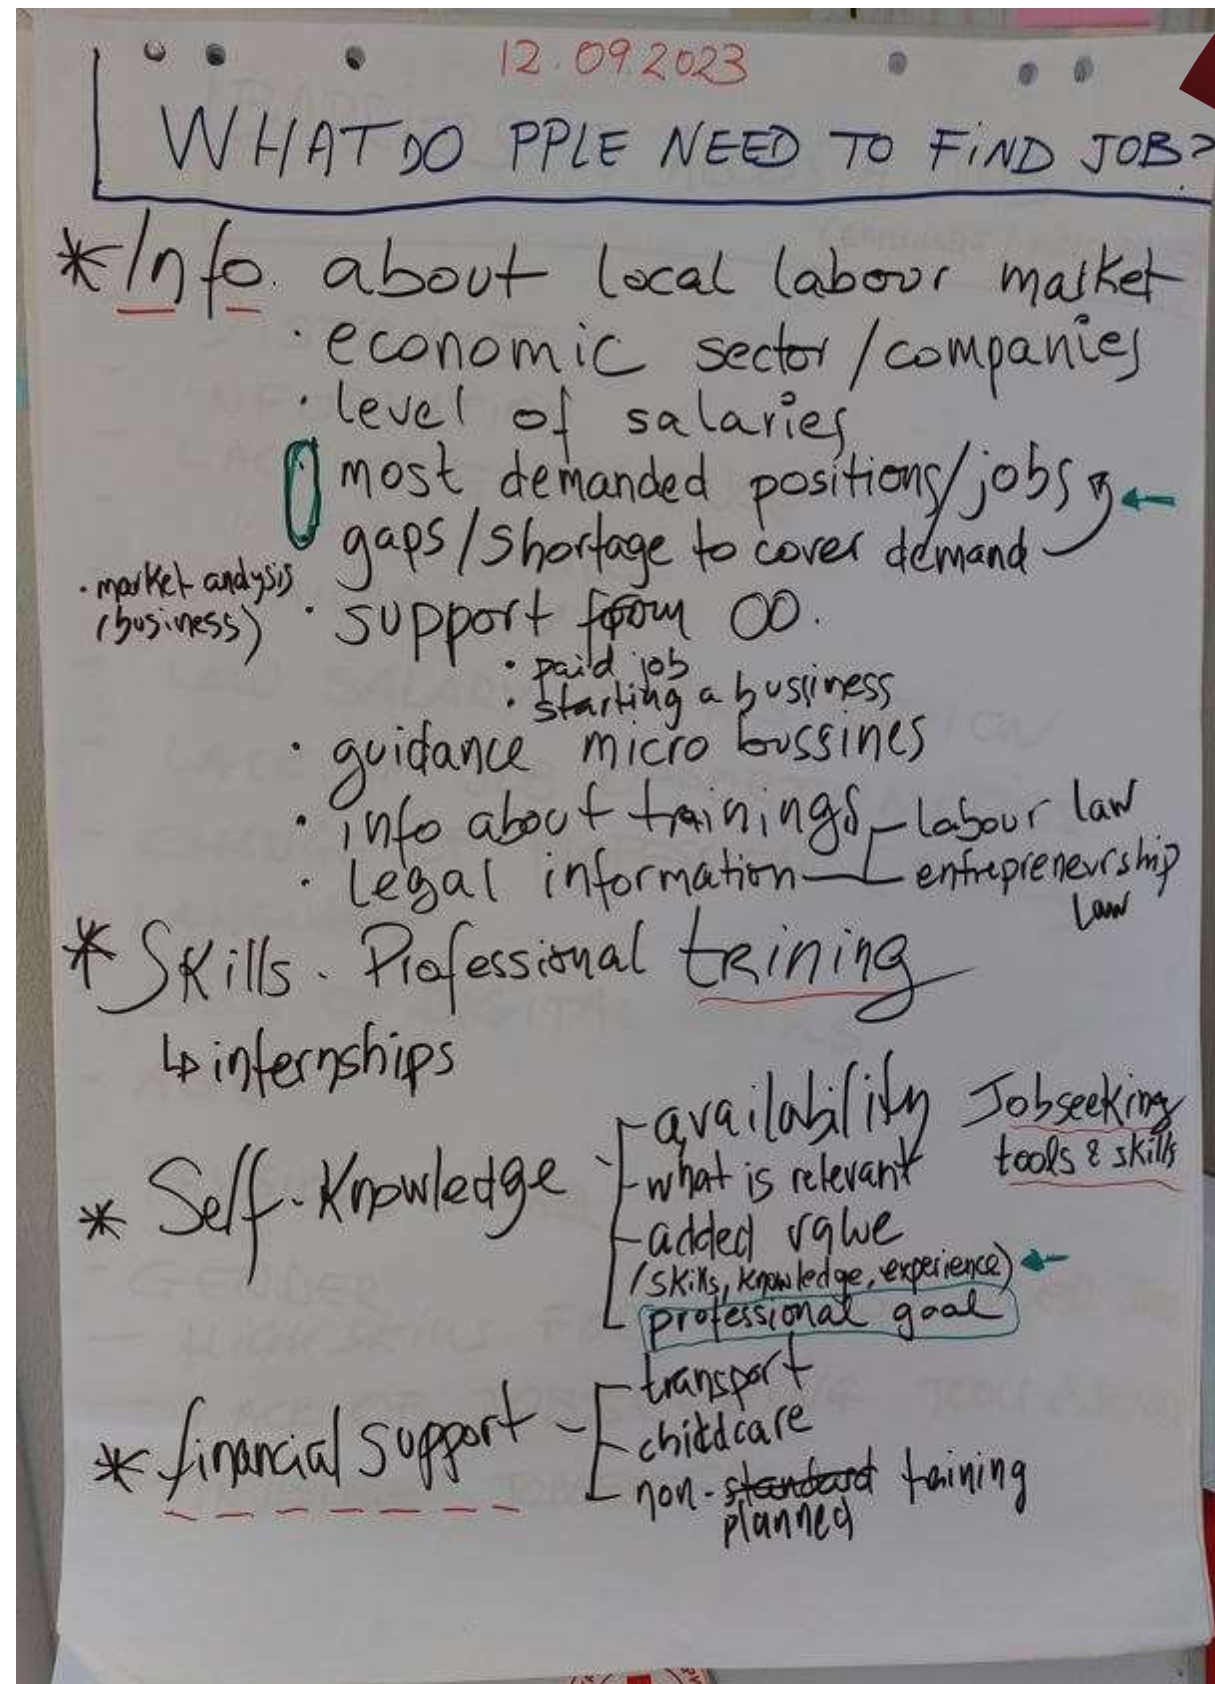 12.09.2023
WHAT DO PPLE NEED TO FIND JOB?
* Info. about local labour market
· economic sector / companies
· level of salaries
· most demanded positions/jobs
gaps/shortage to cover demand
· market analysis
(business)
· support from OO.
· paid job
· starting a bussiness
· guidance micro bussines
· info about trainings
labour law
· legal information
entrepreneurship
law
* Skills. Professional trining
↳ internships
* Self-Knowledge
availability
what is relevant
added value
(skills, knowledge, experience)
professional goal
Jobseeking
tools & skills
* financial support
transport
childcare
non-standard training
planned